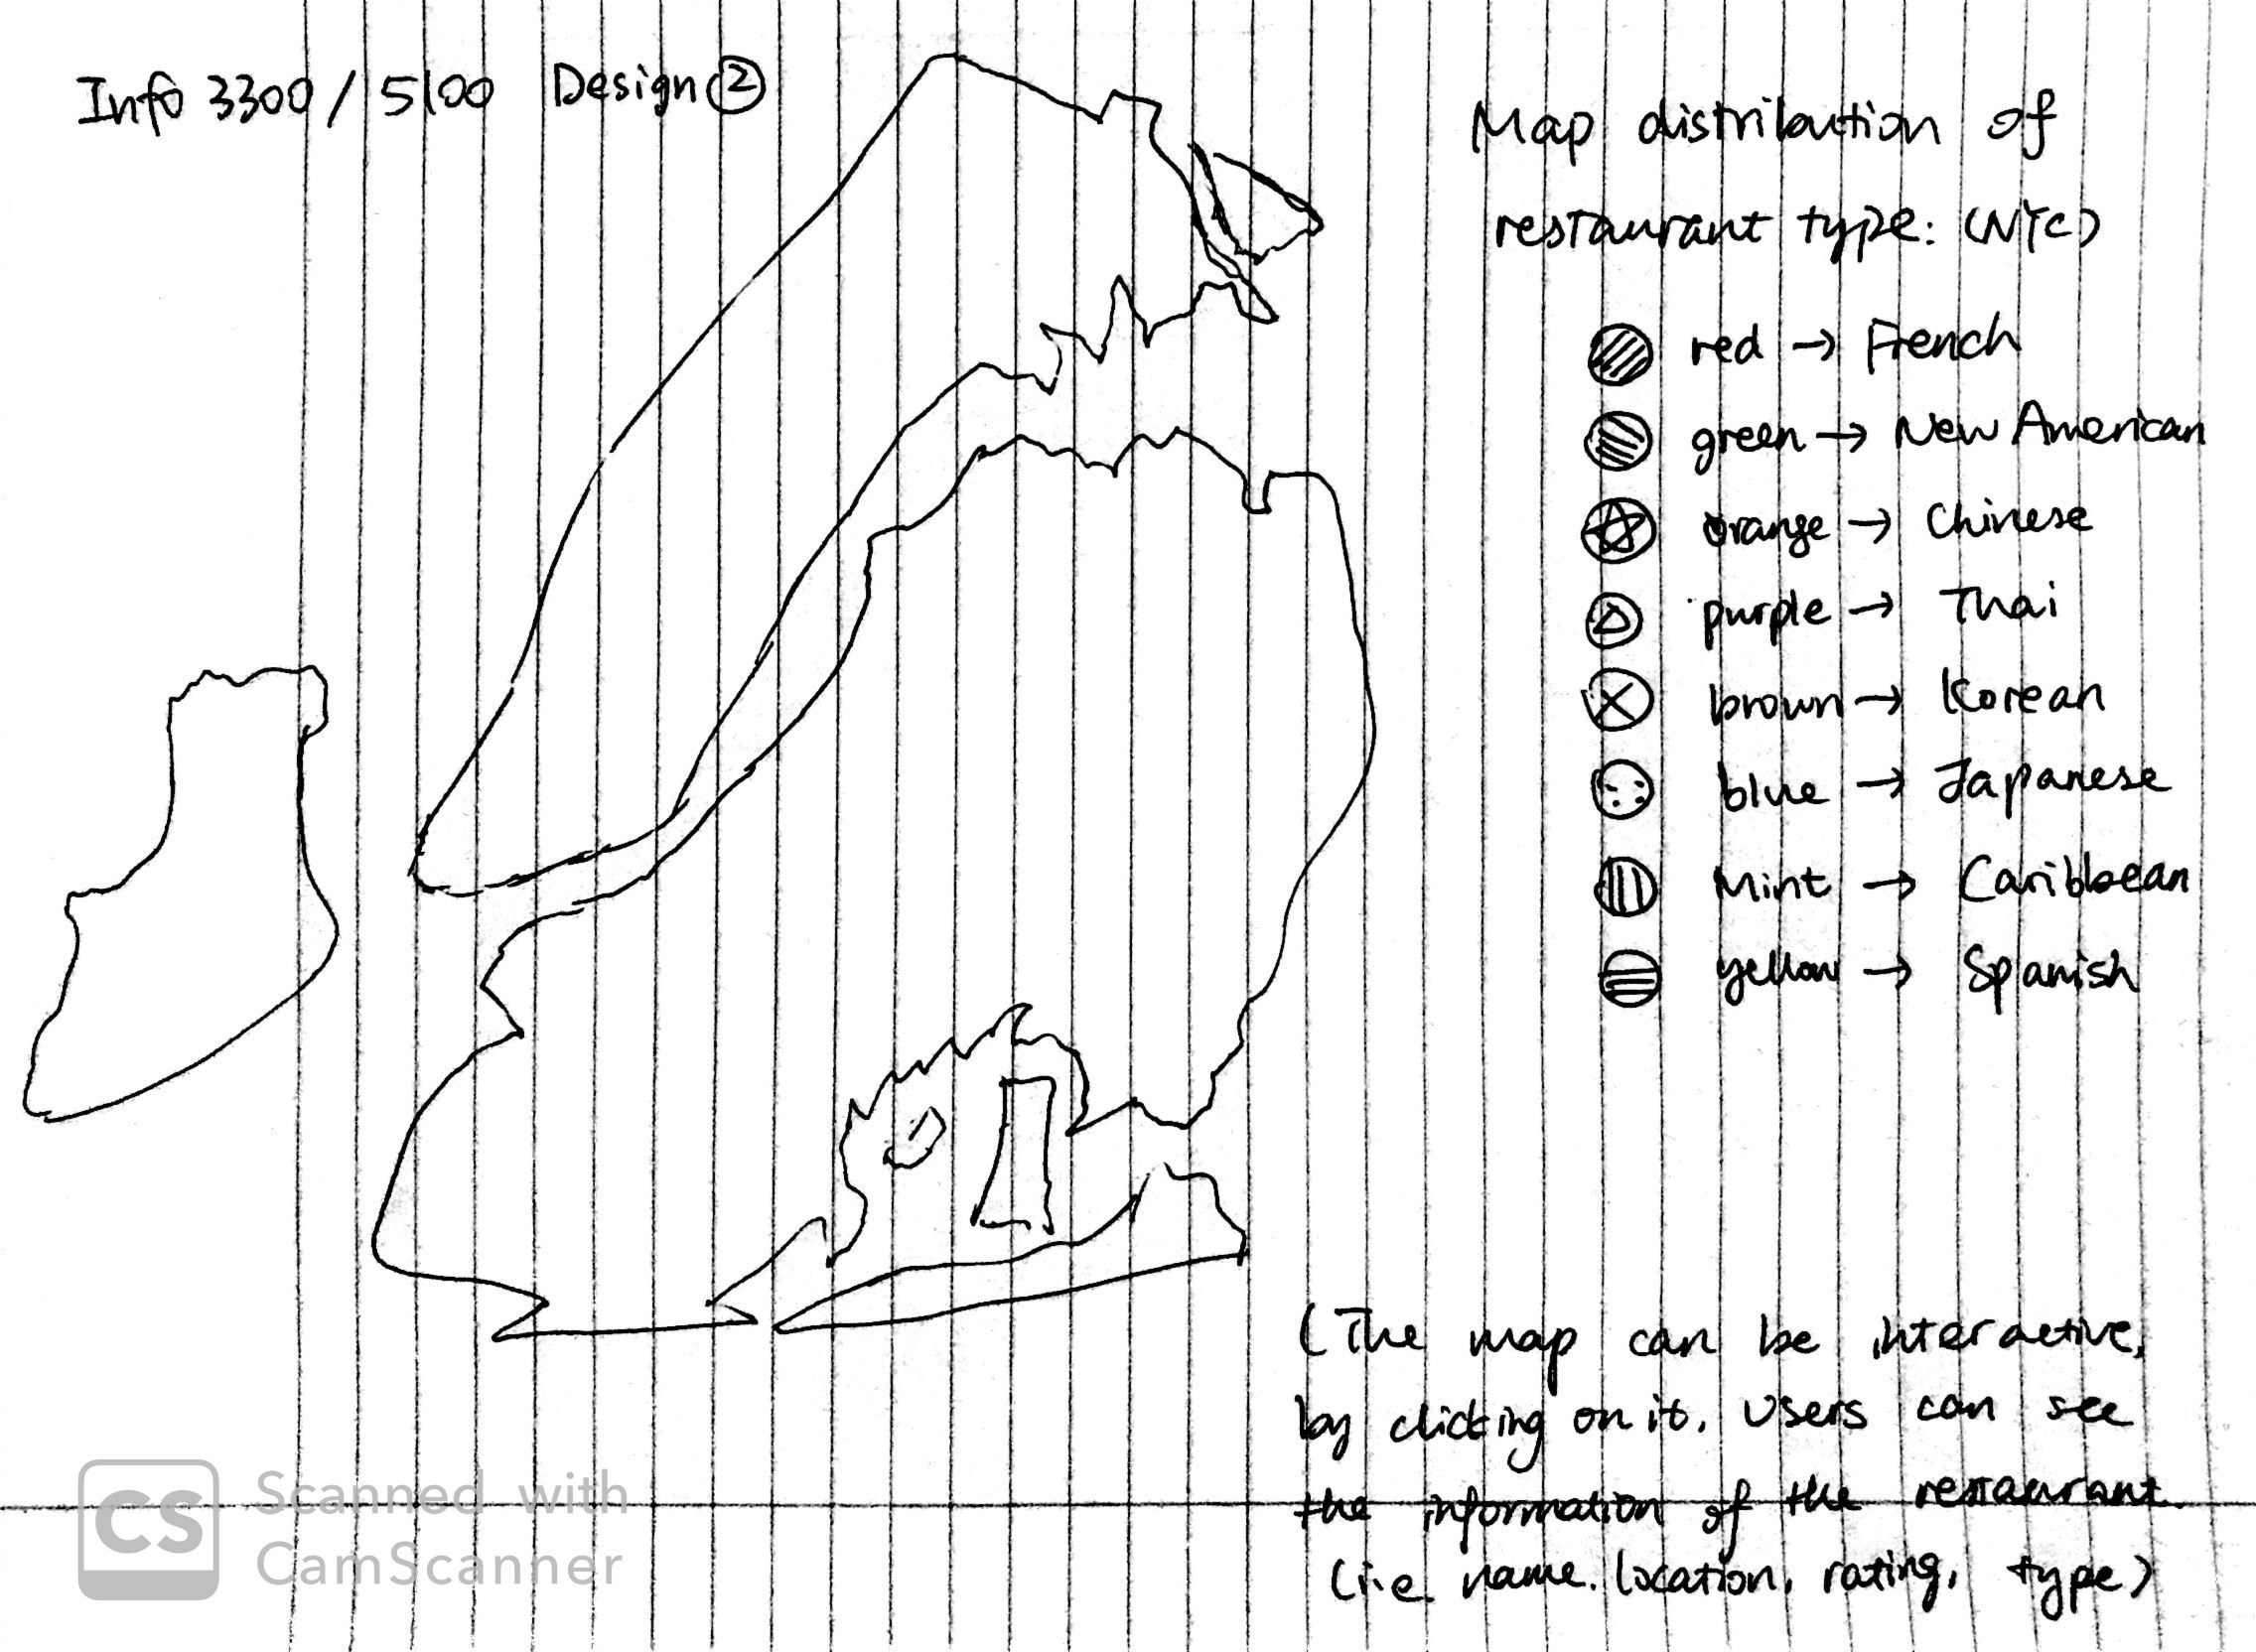 Info 3300 / 5100 Design ②
Map distribution of
restaurant type: (NYC)
red → French
green → New American
orange → Chinese
purple → Thai
brown → Korean
blue → Japanese
Mint → Caribbean
yellow → Spanish
(The map can be interactive,
by clicking on it. Users can see
the information of the restaurant.
(i.e. name. location, rating, type)
CS
Scanned with
CamScanner